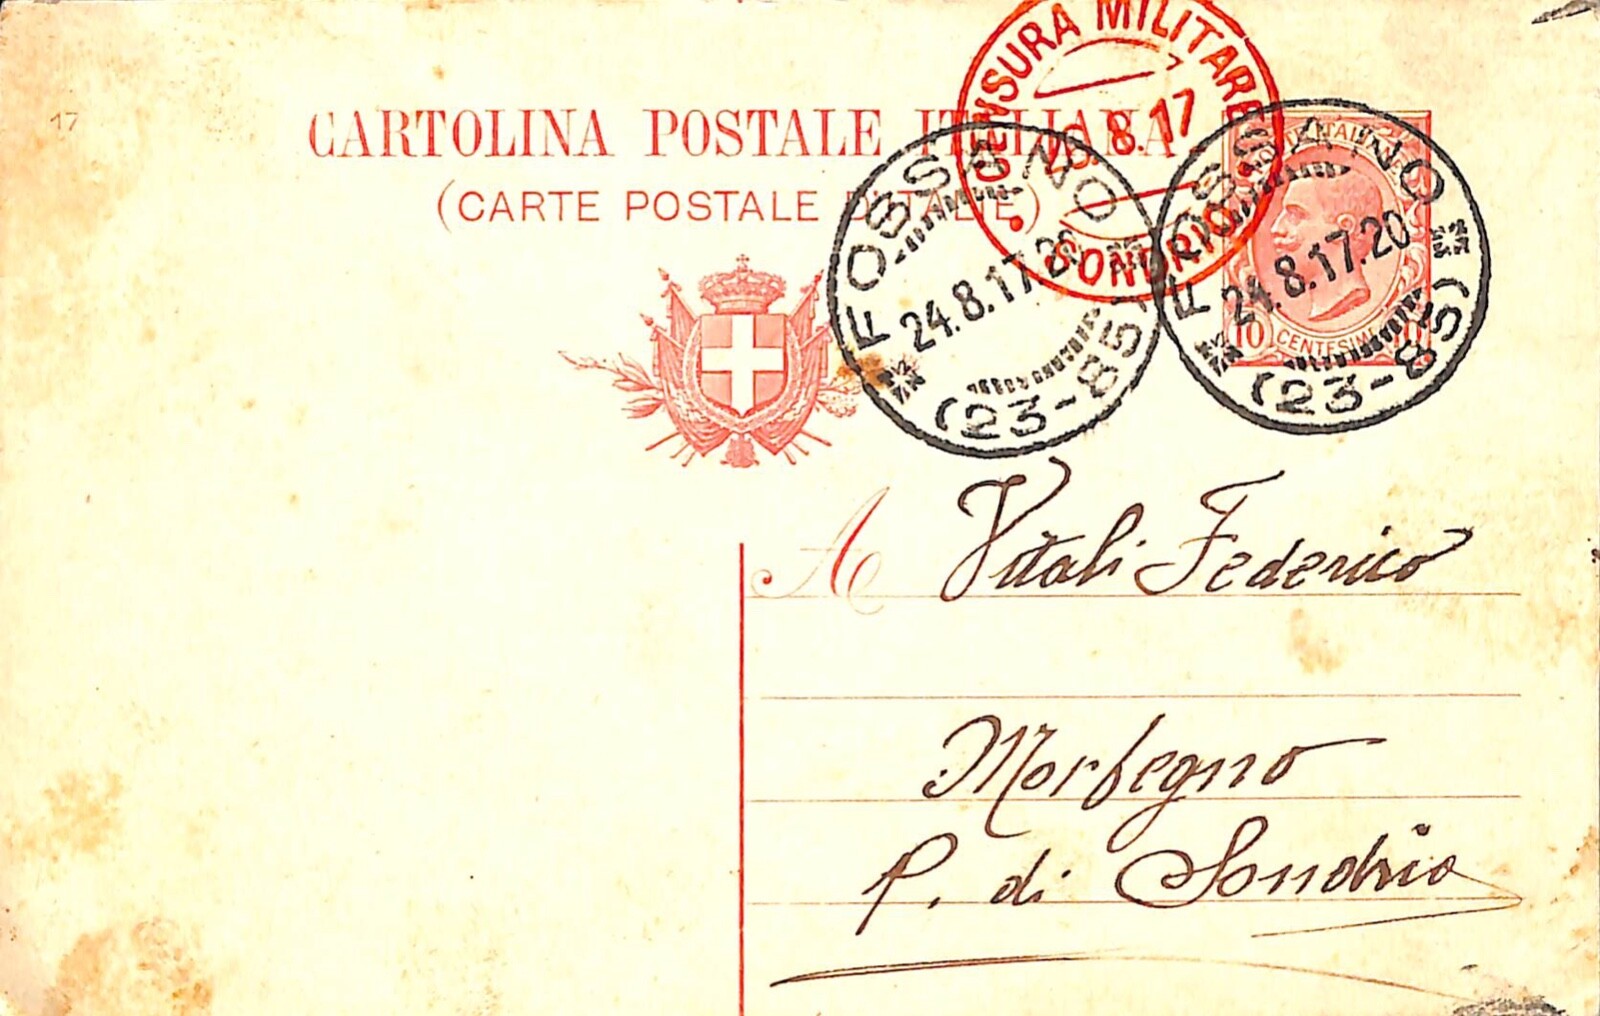 17
CARTOLINA POSTALE ITALIANA
(CARTE POSTALE D'ITALIE)
CENSURA MILITARE
8.17
SONDRIO
FOSSANO
24.8.17.20
(23-85)
FOSSANO
24.8.17.20
(23-85)
10 CENTESIMI 10
A Vitali Federico
Morbegno
P. di Sondrio